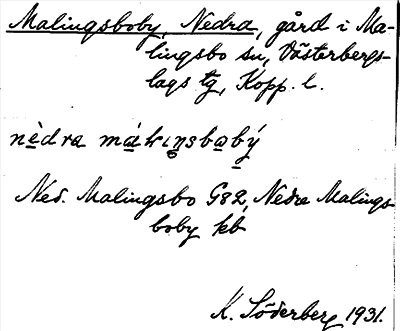 Malingsboby, Nedra, gård i Ma-
lingsbo sn, Västerbergs-
lags tg, Kopp. l.
nèdra máłɩŋsbobý
Ned. Malingsbo G82, Nedre Malings-
boby kb
K. Söderberg 1931.